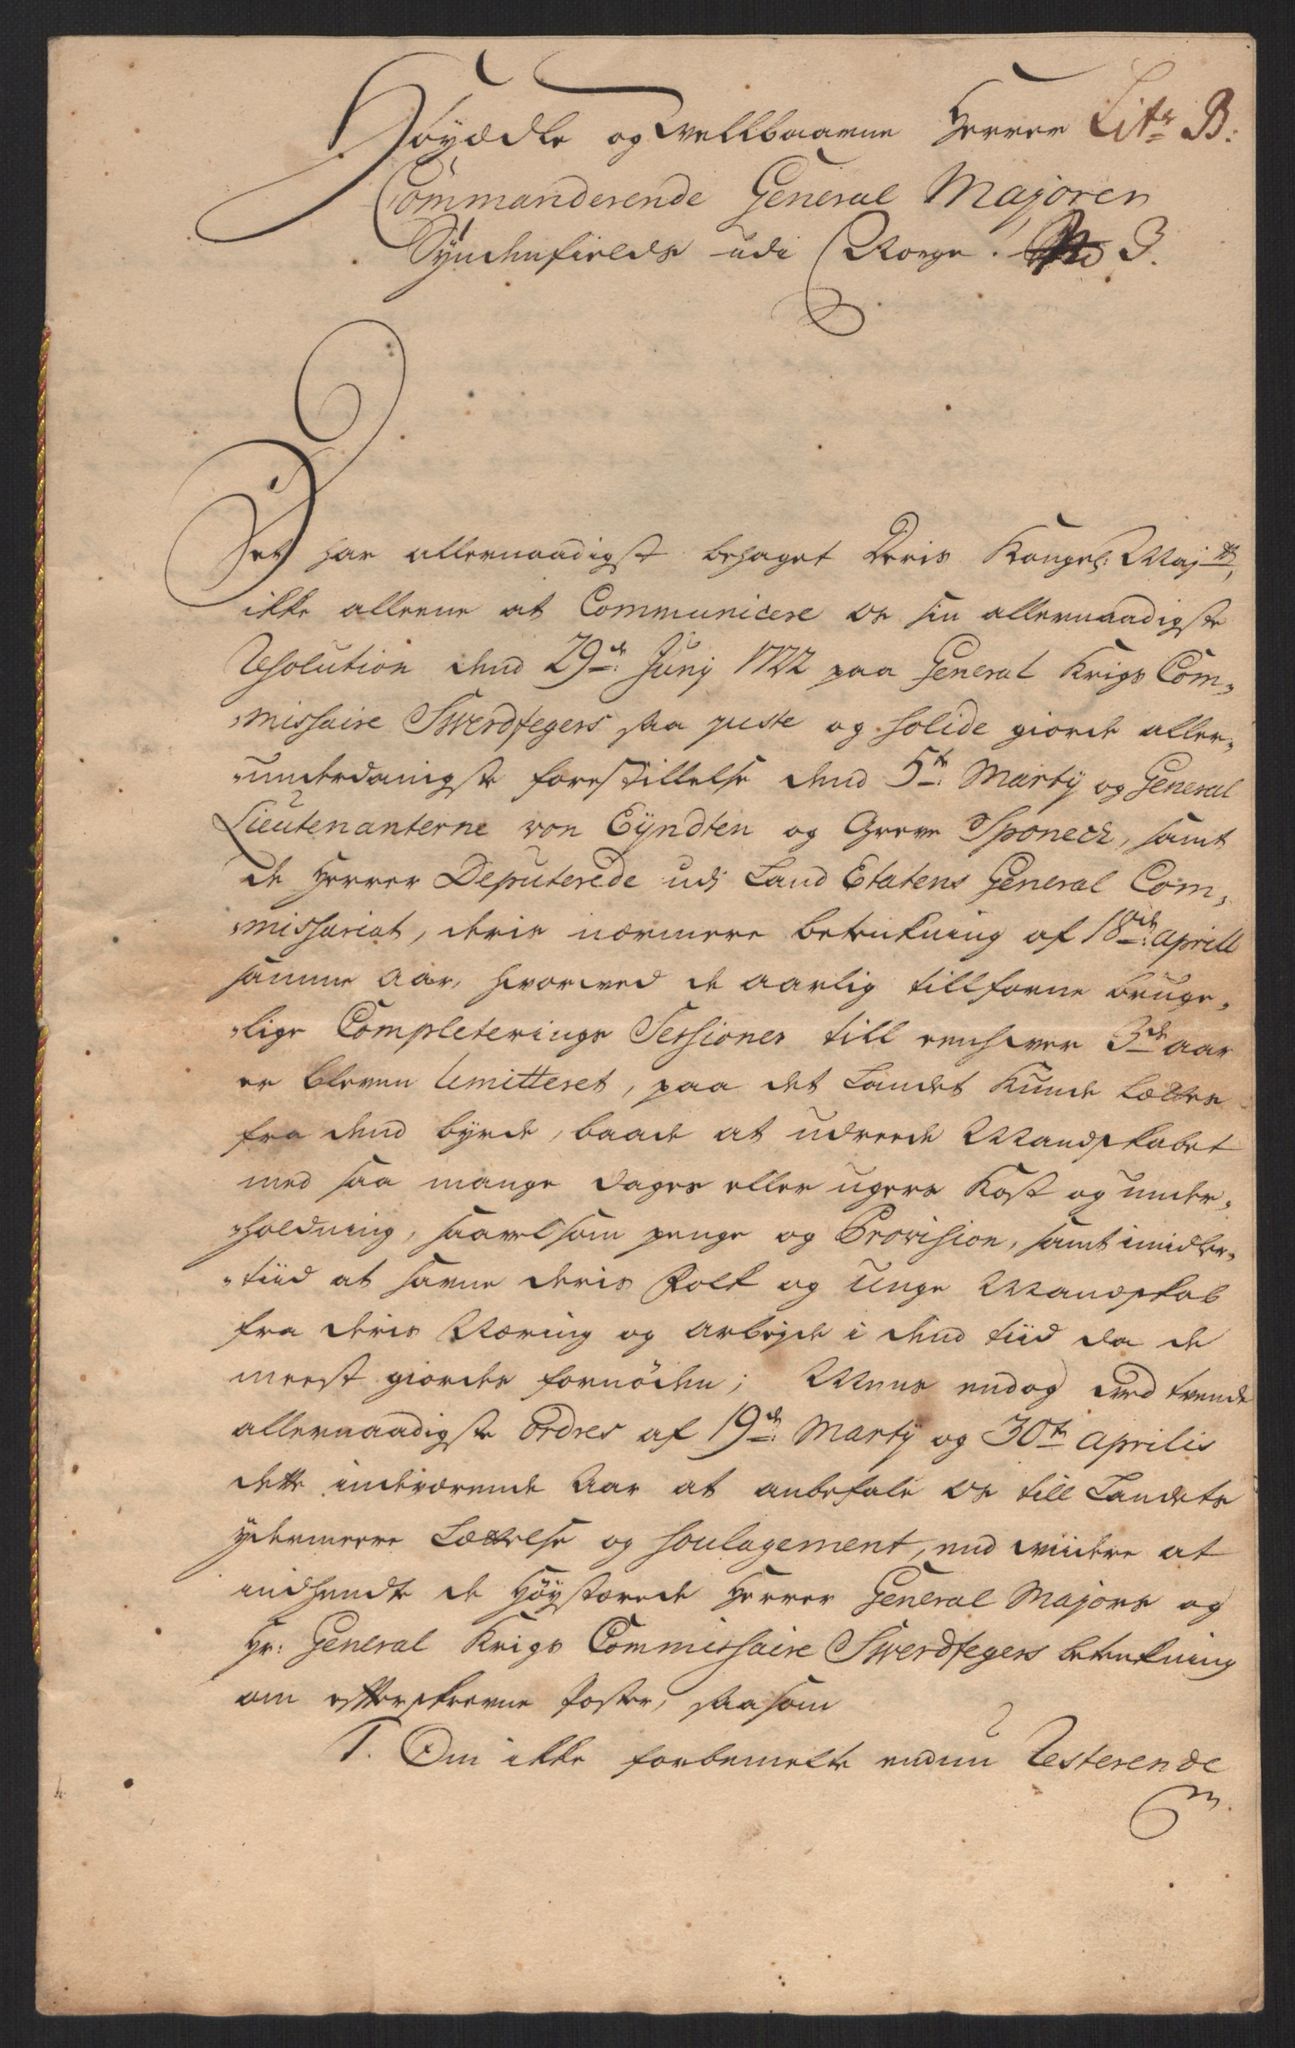 Höyædle og velbaarne Herrer Litr B:
Commanderende General Majorer
Syndenfields udi Norge. No 3.
Det har allernaadigst behaget Deris Kongel: Mayts,
ikke alleene at Communicere os sin allernaadigste
Resolution dend 29de Juny 1722 paa General Krigs Com„
„missaire Swerdfegers saa juste og solide giorde aller„
„underdanigste forestillelse dend 5te Marty og General
Lieutenanterne von Eyndten og Greve Sponeck, samt
de Herrer Deputerede udi Land Etatens General Com„
„missariat, deris nærmere betenkning af 18de aprill
samme aar, hvorved de aarlig tillforne bruge„
„lige Completerings Sessioner till enhver 3de aar
er bleven limitteret, paa det Landet kunde lættes
fra dend byrde, baade at udreede Mandskabet
med saa mange dages eller ugers kost og under„
„holdning, saavelsom penge og Provision, samt imidler„
„tiid at savne deris Folk og unge Mandskab
fra deris Næring og arbejde i dend tiid da de
meest giordes fornöden; Mens endog ved tvende
allernaadigste ordres af 19de Marty og 30te Aprilis
dette indeværende Aar at anbefale os till Landets
ydermeere Lættelse og soulagement, end viidere at
indhendte de Höystærede Herrer General Majors og
Hr: General Krigs Commissaire Swerdfegers betenkning
om efterskrevne Poster, saasom
1. Om ikke forbemelte endnu Resterende